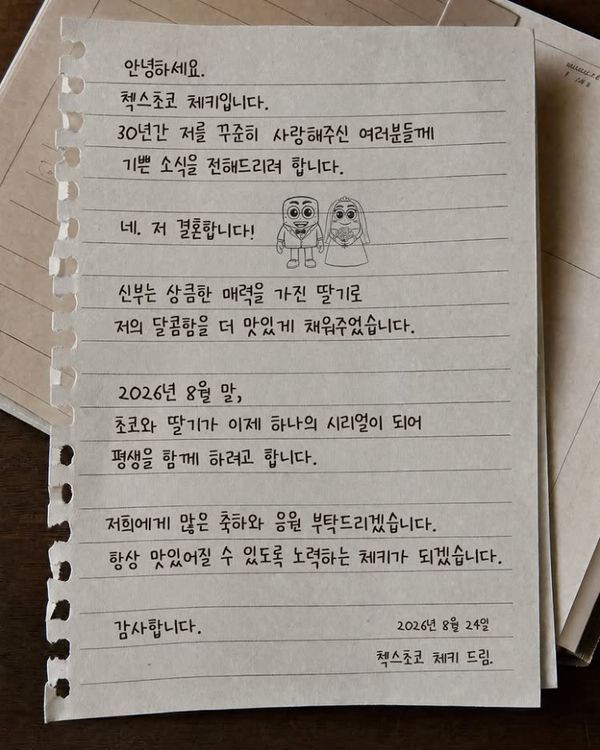 안녕하세요.
첵스초코 체키입니다.
30년간 저를 꾸준히 사랑해주신 여러분들께
기쁜 소식을 전해드리려 합니다.
네. 저 결혼합니다!
신부는 상큼한 매력을 가진 딸기로
저의 달콤함을 더 맛있게 채워주었습니다.
2026년 8월 말,
초코와 딸기가 이제 하나의 시리얼이 되어
평생을 함께 하려고 합니다.
저희에게 많은 축하와 응원 부탁드리겠습니다.
항상 맛있어질 수 있도록 노력하는 체키가 되겠습니다.
감사합니다.
2026년 8월 24일
첵스초코 체키 드림.